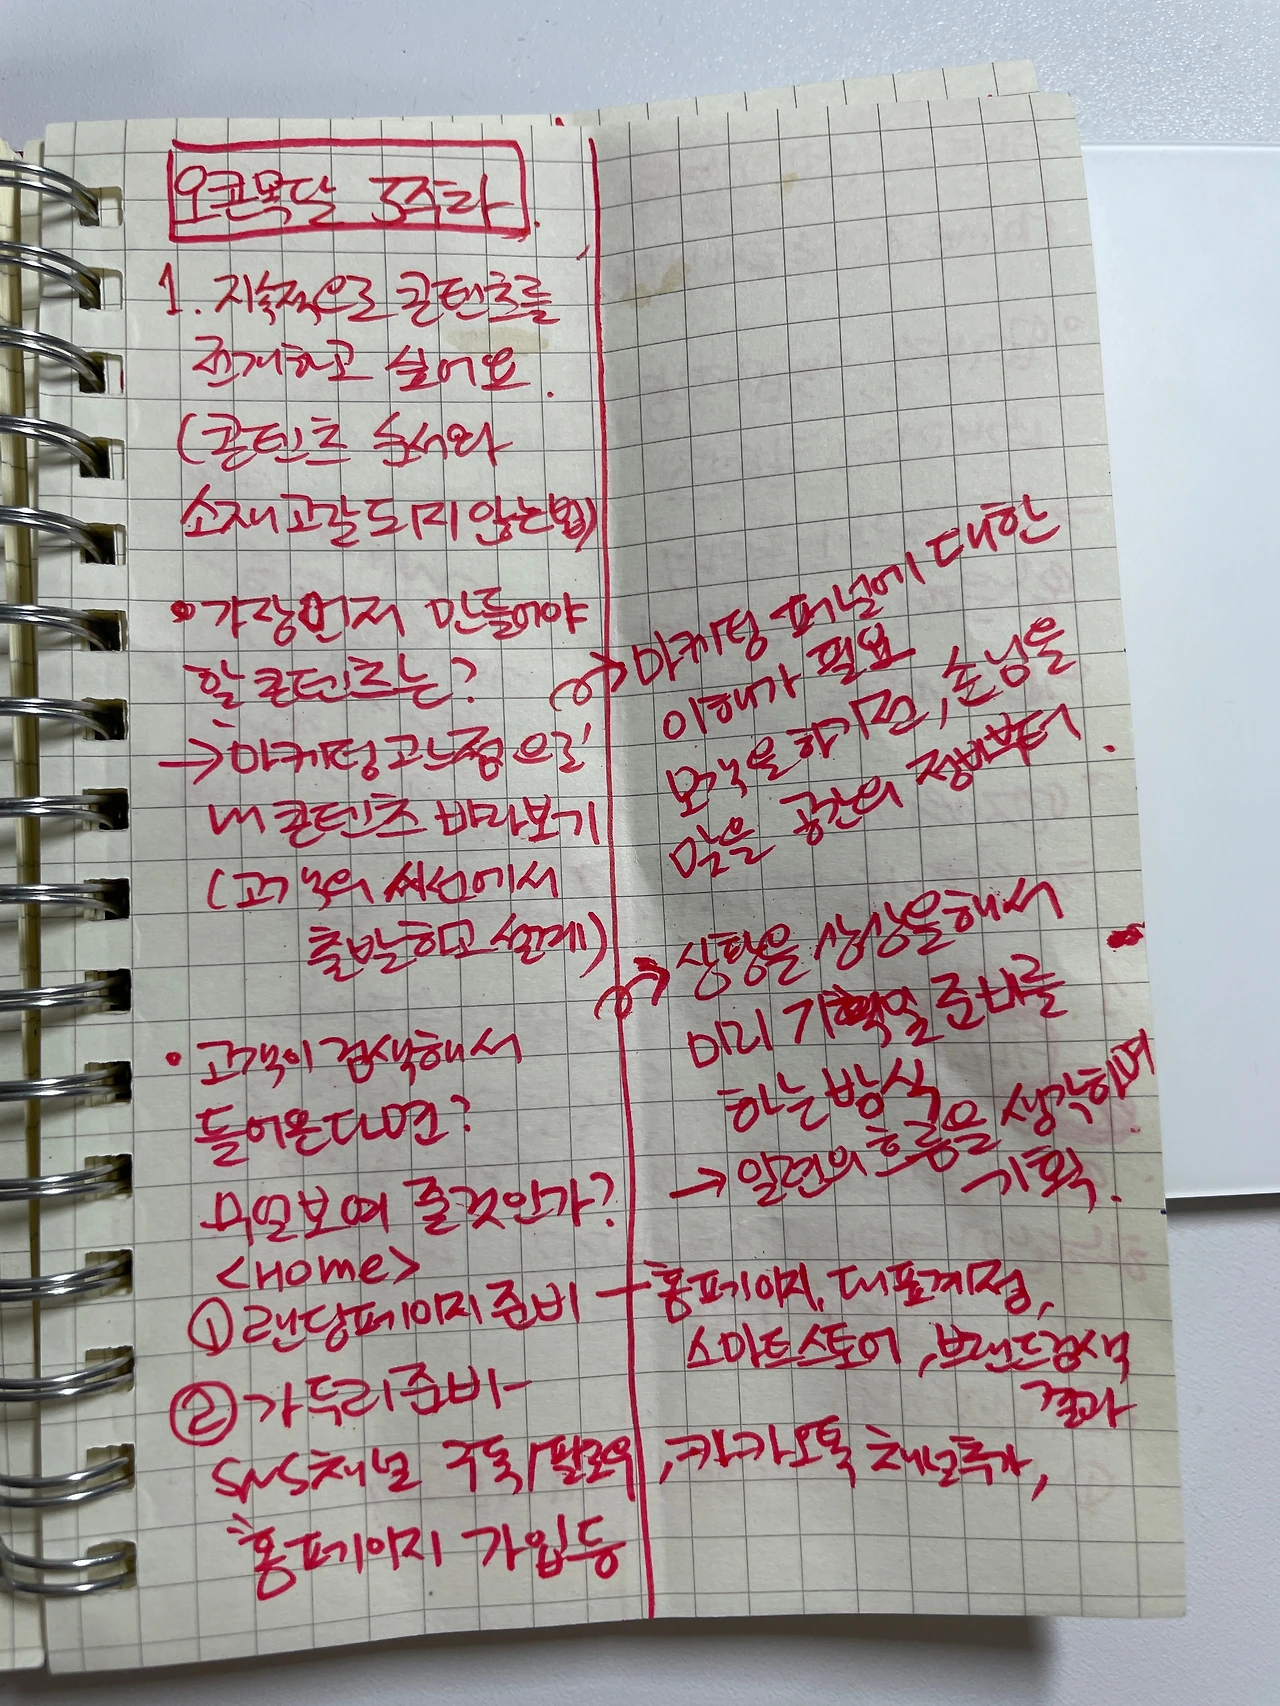 오콘목달 3주차.
1. 지속적으로 콘텐츠를
전개하고 싶어요.
(콘텐츠 순서와
소재 고갈되지 않는법)
• 가장먼저 만들어야
할 콘텐츠는?
→ 마케팅관점으로
내 콘텐츠 바라보기
(고객의 시선에서
출발하고 설계)
→ 마케팅 퍼널에 대한
이해가 필요
모객을 하기전, 손님을
맞을 공간의 정비부터.
• 고객이 검색해서
들어온다면?
무얼보여 줄것인가?
→ 상황을 상상을해서
미리 기획일 준비를
하는방식
→ 일련의 흐름을 생각하며
기획.
<Home>
① 랜딩페이지준비 — 홈페이지, 대표계정,
스마트스토어, 브랜드검색
결과
② 가두리준비-
SNS채널 구독/팔로우, 카카오톡 채널추가,
홈페이지 가입 등